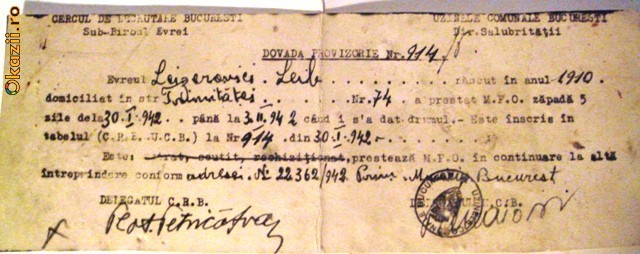 Okazii.ro
CERCUL DE RECRUTARE BUCURESTI
Sub-Biroul Evrei
UZINELE COMUNALE BUCURESTI
Dir. Salubrității
DOVADA PROVIZORIE Nr. 914
Evreul Leizerovici Leib . . . . . . . . născut în anul 1910.
domiciliat în str Trinitătei . . . . . . Nr. 74 a prestat M.F.O. zăpadă 5
zile dela 30.I.942. până la 3.II.942 când i s'a dat drumul.- Este înscris în
tabelul (C.R.B. U.C.B.) la Nr 914 din 30.I.942.-
Este: scutit, rechiziționat, prestează M.F.O. în continuare la altă
întreprindere conform adresei No 22362/942 București
DELEGATUL C.R.B.
U.C.B.